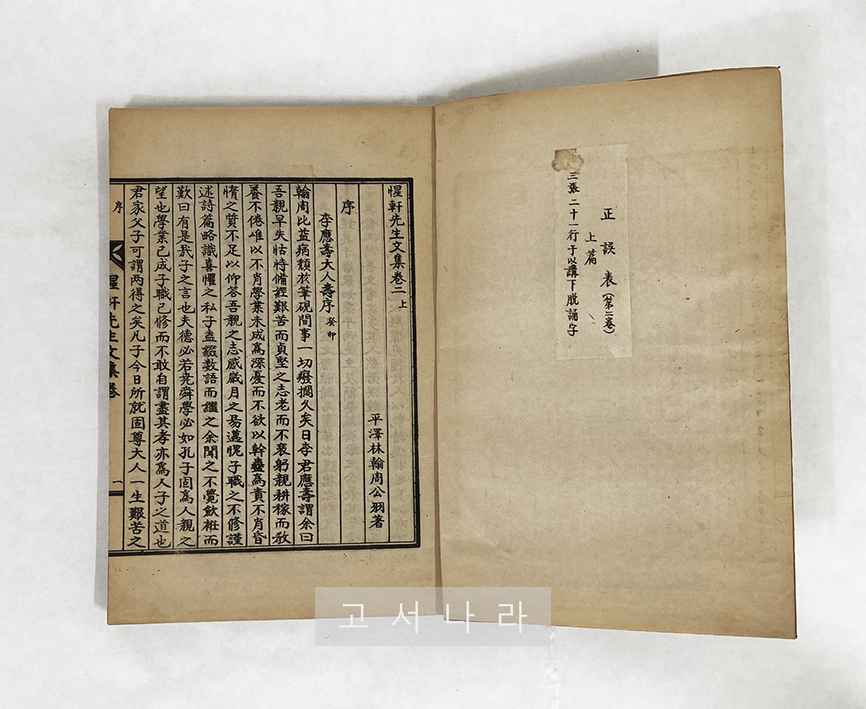 正誤表(第二卷)
上篇
三張二十一行于以講下脱誦字
惺軒先生文集卷二 上
平澤林翰周公羽著
序
李應壽大人壽序 癸卯
翰周比益病頹於筆硯間事一切癈擱久矣日李君應壽謂余曰
吾親早失怙恃備經艱苦而貞堅之志老而不衰躬親耕稼而敎
養不倦唯以不肖學業未成爲深憂而不欲以幹蠱爲責不肖昏
惰之質不足以仰答吾親之志感歲月之易邁愧子職之不修謹
述詩篇略識喜懼之私子盍綴数語而繼之余聞之不覺飮袵而
歎曰有是哉子之言也夫德必若尭舜學必如孔子固爲人親之
望也學業已成子職已修而不敢自謂盡其孝亦爲人子之道也
君家父子可謂兩得之矣凡子今日所就固尊大人一生艱苦之
序
惺軒先生文集卷
一
고서나라